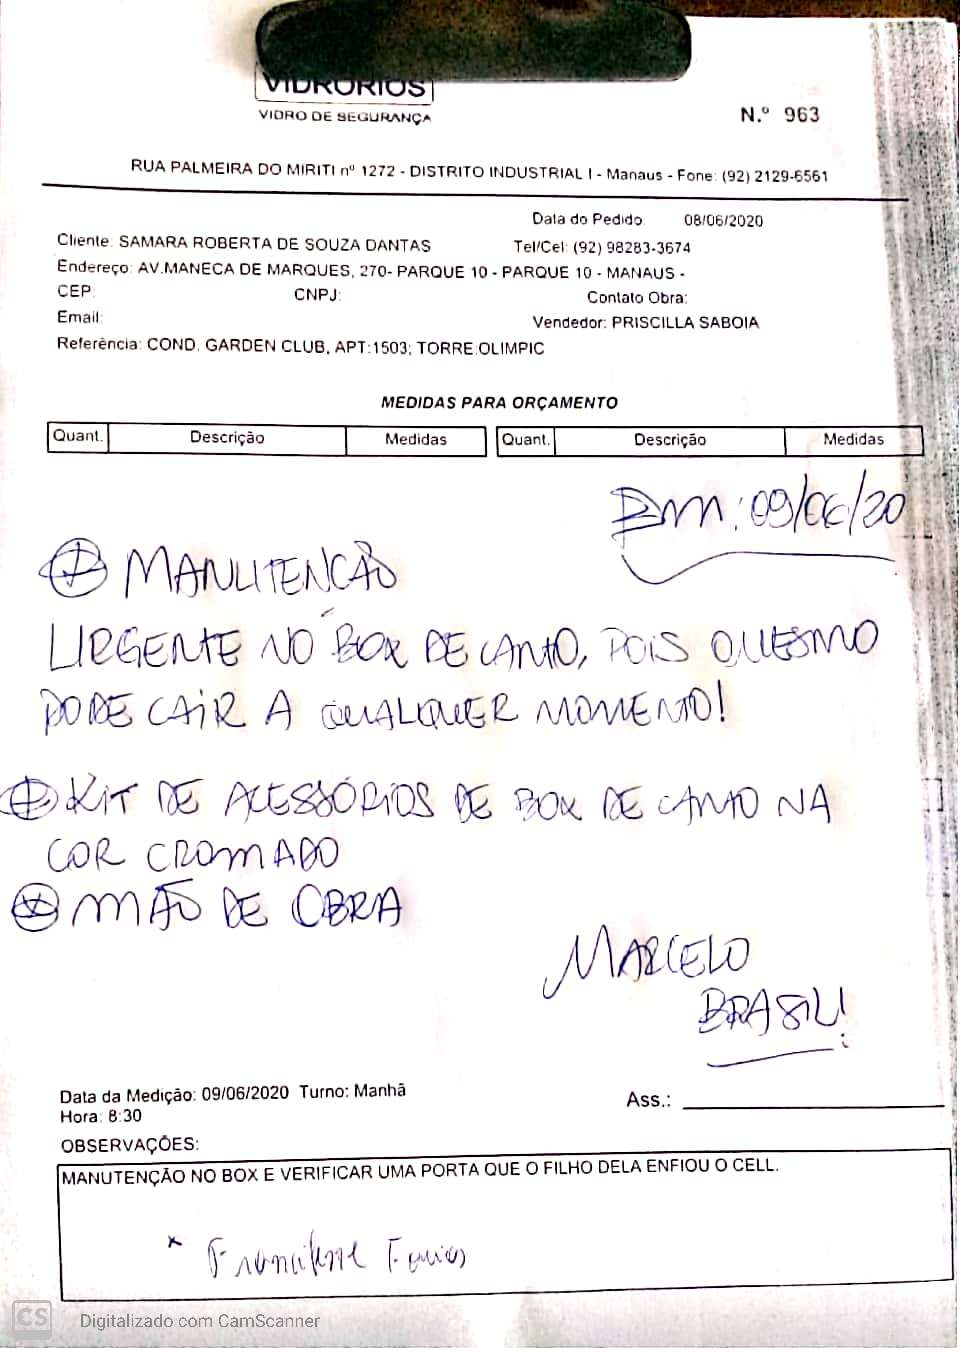 VIDRORIOS
VIDRO DE SEGURANÇA
N.º 963
RUA PALMEIRA DO MIRITI nº 1272 - DISTRITO INDUSTRIAL I - Manaus - Fone: (92) 2129-6561
Data do Pedido: 08/06/2020
Cliente: SAMARA ROBERTA DE SOUZA DANTAS Tel/Cel: (92) 98283-3674
Endereço: AV.MANECA DE MARQUES, 270- PARQUE 10 - PARQUE 10 - MANAUS -
CEP: CNPJ: Contato Obra:
Email: Vendedor: PRISCILLA SABOIA
Referência: COND. GARDEN CLUB, APT:1503; TORRE:OLIMPIC
MEDIDAS PARA ORÇAMENTO
Quant. Descrição Medidas Quant. Descrição Medidas
Em: 09/06/20
MANUTENCÃO
URGENTE NO BOX DE CANTO, POIS O MESMO
PODE CAIR A QUALQUER MOMENTO!
KIT DE ACESSÓRIOS DE BOX DE CANTO NA
COR CROMADO
MÃO DE OBRA
MARCELO
BRASIL!
Data da Medição: 09/06/2020 Turno: Manhã
Hora: 8:30
Ass.:
OBSERVAÇÕES:
MANUTENÇÃO NO BOX E VERIFICAR UMA PORTA QUE O FILHO DELA ENFIOU O CELL.
CS Digitalizado com CamScanner